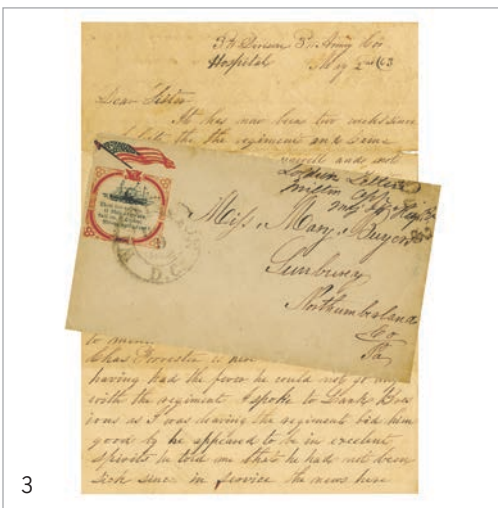 3rd Division 3rd Army Cor
Hospital May 2nd /63
Dear Sister
It has now been two weeks since
left the the regiment and come
and not
Soldiers Letter
Milton Opp
Maj
Miss. Mary. Buyers
Sunbury
Northumberland
Co
Pa
D.C.
to
Chas Forrester is
having had the fever he could not go
with the regiment I spoke to Hank Bras
ious as I was leaving the regiment bid him
good by he appeared to be in excelent
spirits he told me that he had not been
sick since in service the news here
3